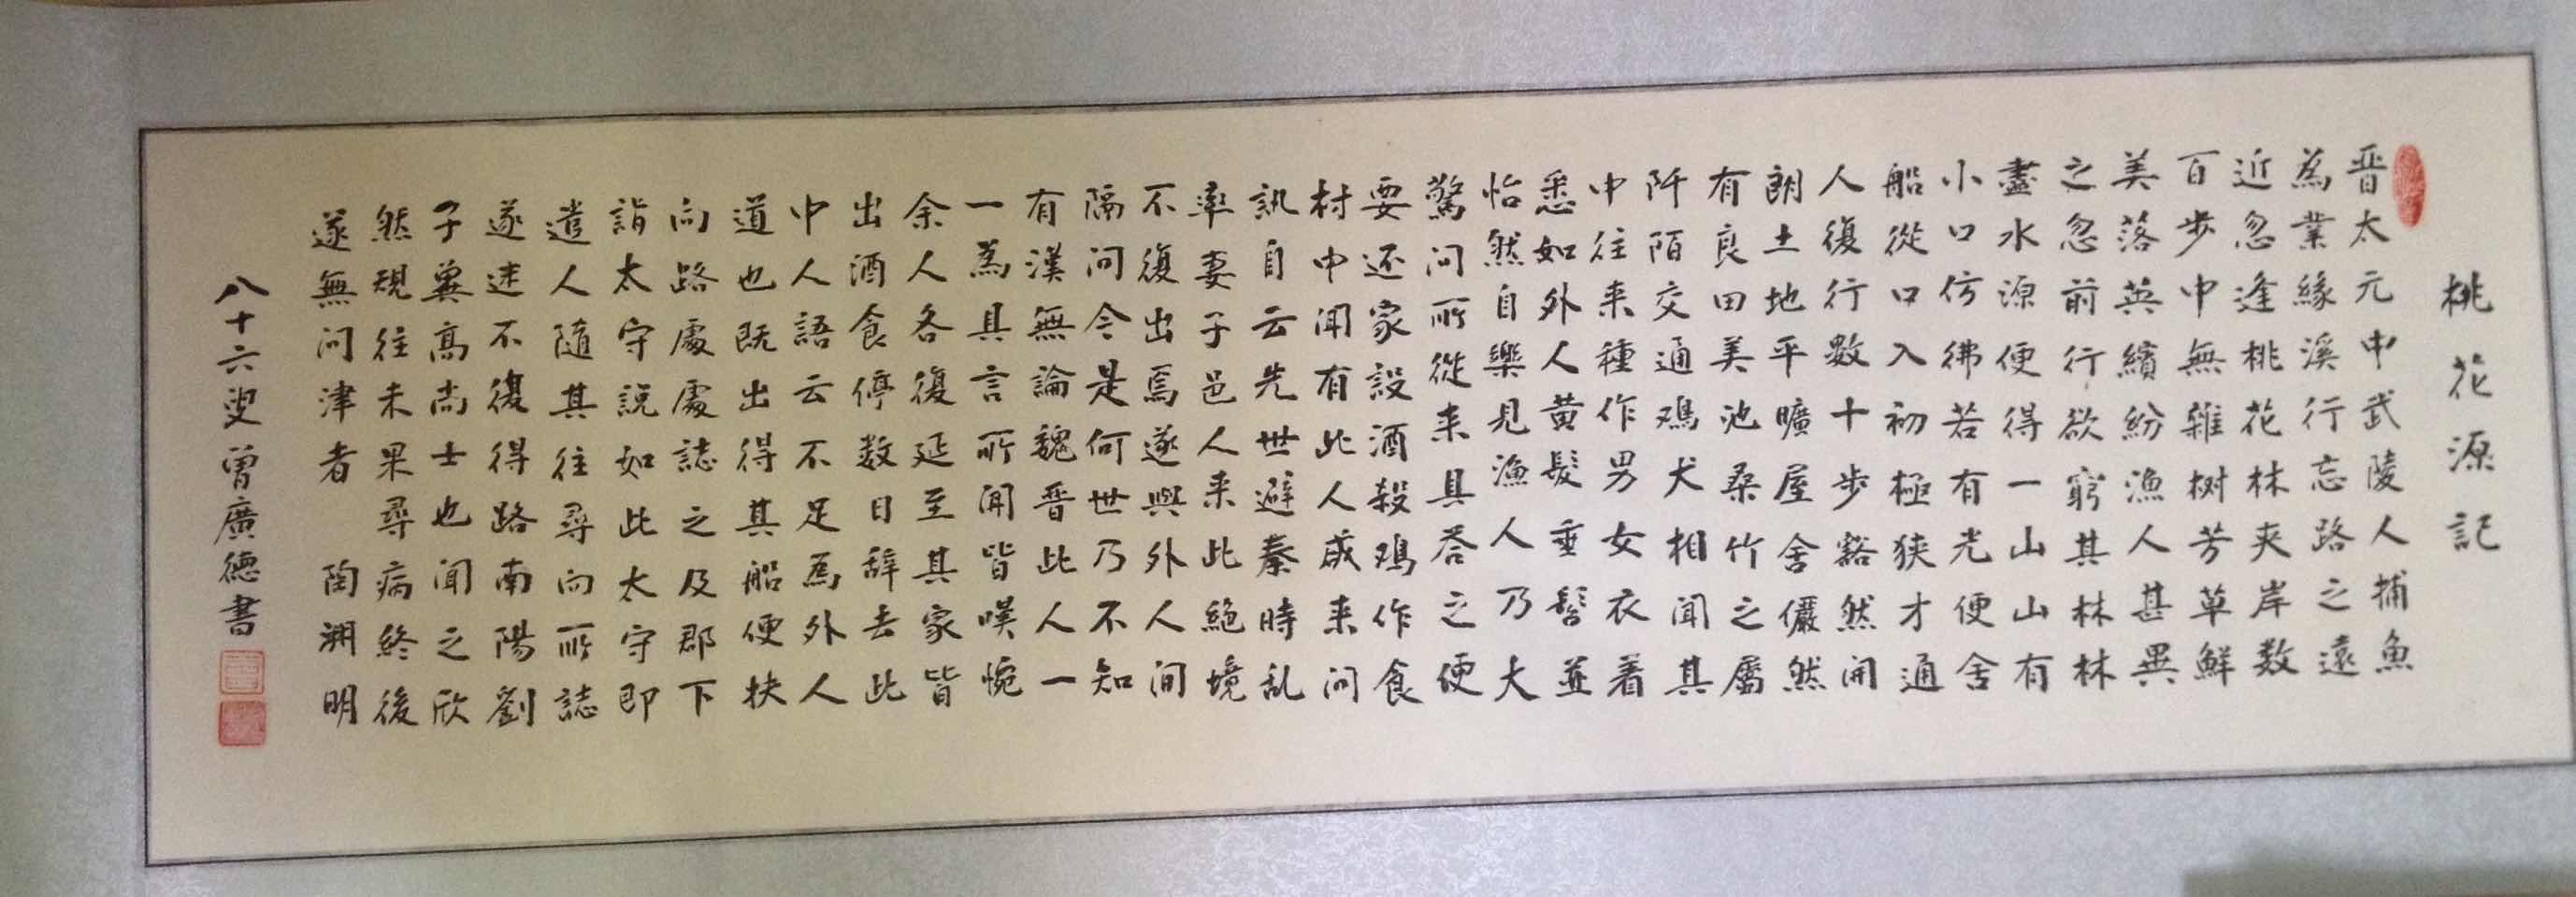 桃花源記
晋太元中武陵人捕魚
為業緣溪行忘路之遠
近忽逢桃花林夾岸数
百步中無雜树芳草鮮
美落英繽紛漁人甚異
之忽前行欲窮其林林
盡水源便得一山山有
小口仿彿若有光便舍
船從口入初極狹才通
人復行數十步豁然開
朗土地平曠屋舍儼然
有良田美池桑竹之屬
阡陌交通鸡犬相聞其
中往来種作男女衣着
悉如外人黄髮垂髫並
怡然自樂見漁人乃大
驚问所從来具答之便
要还家設酒殺鸡作食
村中聞有此人咸来问
訊自云先世避秦時乱
率妻子邑人来此絕境
不復出焉遂與外人间
隔问今是何世乃不知
有漢無論魏晋此人一
一為具言所聞皆嘆惋
余人各復延至其家皆
出酒食停数日辞去此
中人語云不足為外人
道也既出得其船便扶
向路處處誌之及郡下
詣太守説如此太守即
遣人隨其往尋向所誌
遂迷不復得路南陽劉
子冀高尚士也聞之欣
然規往未果尋病終後
遂無问津者 陶渊明
八十六叟曾廣德書